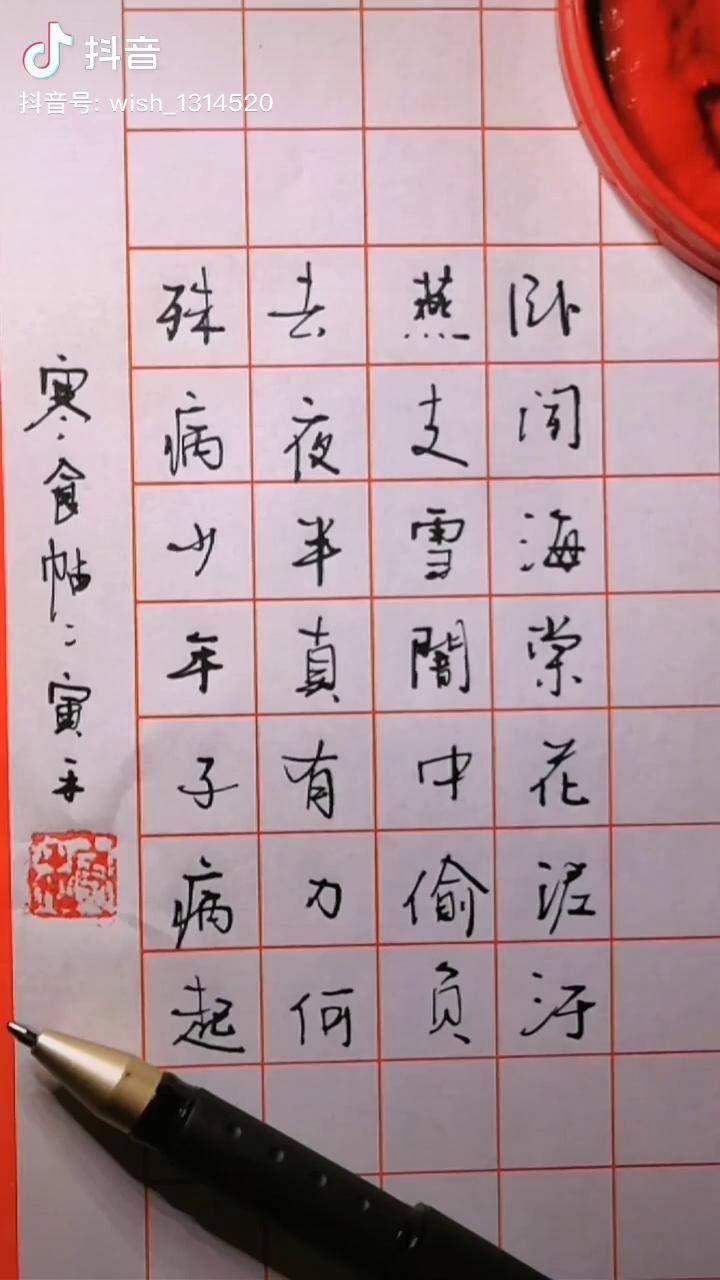 抖音
抖音号: wish_1314520
卧闻海棠花泥汙
燕支雪闇中偷负
去夜半真有力何
殊病少年子病起
寒食帖二寅